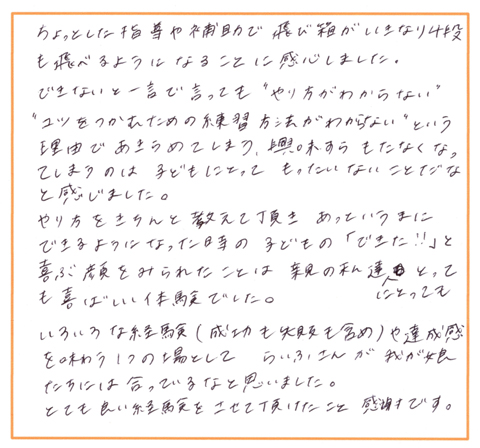 ちょっとした指導や補助で飛び箱がいきなり4段
も飛べるようになることに感心しました。
できないと一言で言っても“やり方がわからない”
“コツをつかむための練習方法がわからない”という
理由であきらめてしまう、興味すらもたなくなっ
てしまうのは子どもにとってもったいないことだな
と感じました。
やり方をきちんと教えて頂きあっというまに
できるようになった時の子どもの「できた!!」と
喜ぶ顔をみられたことは親の私達にとって
も喜ばしい体験でした。
いろいろな経験(成功も失敗も含め)や達成感
を味わう1つの場としてらいふさんが我が娘
たちには合っているなと思いました。
とても良い経験をさせて頂けたこと感謝です。